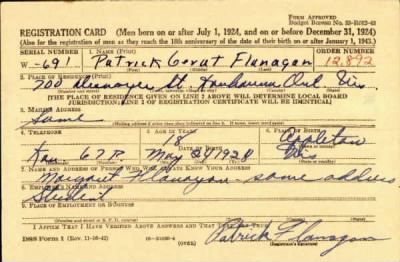 FORM APPROVED
REGISTRATION CARD (Men born on or after July 1, 1924, and on or before December 31, 1924)
(Also for the registration of men as they reach the 18th anniversary of the date of their birth on or after January 1, 1943.)
SERIAL NUMBER 1. NAME (Print) ORDER NUMBER
W-691 Patrick Flanagan 12,892
(First) (Middle) (Last)
2. PLACE OF RESIDENCE (Print)
700 St Wis
[THE PLACE OF RESIDENCE GIVEN ON LINE 2 ABOVE WILL DETERMINE LOCAL BOARD
JURISDICTION; LINE 2 OF REGISTRATION CERTIFICATE WILL BE IDENTICAL]
3. MAILING ADDRESS
Same
4. TELEPHONE 5. AGE IN YEARS 6. PLACE OF BIRTH
18 Appleton
Kau 67R May 24 1924 Wis
7. NAME AND ADDRESS OF PERSON WHO WILL ALWAYS KNOW YOUR ADDRESS
Margaret Flanagan - same address
8. EMPLOYER'S NAME AND ADDRESS
Student
9. PLACE OF EMPLOYMENT OR BUSINESS
I AFFIRM THAT I HAVE VERIFIED ABOVE ANSWERS AND THAT THEY ARE TRUE.
DSS Form 1 (Rev. 11-16-42) (OVER) Patrick Flanagan
(Registrant's signature)